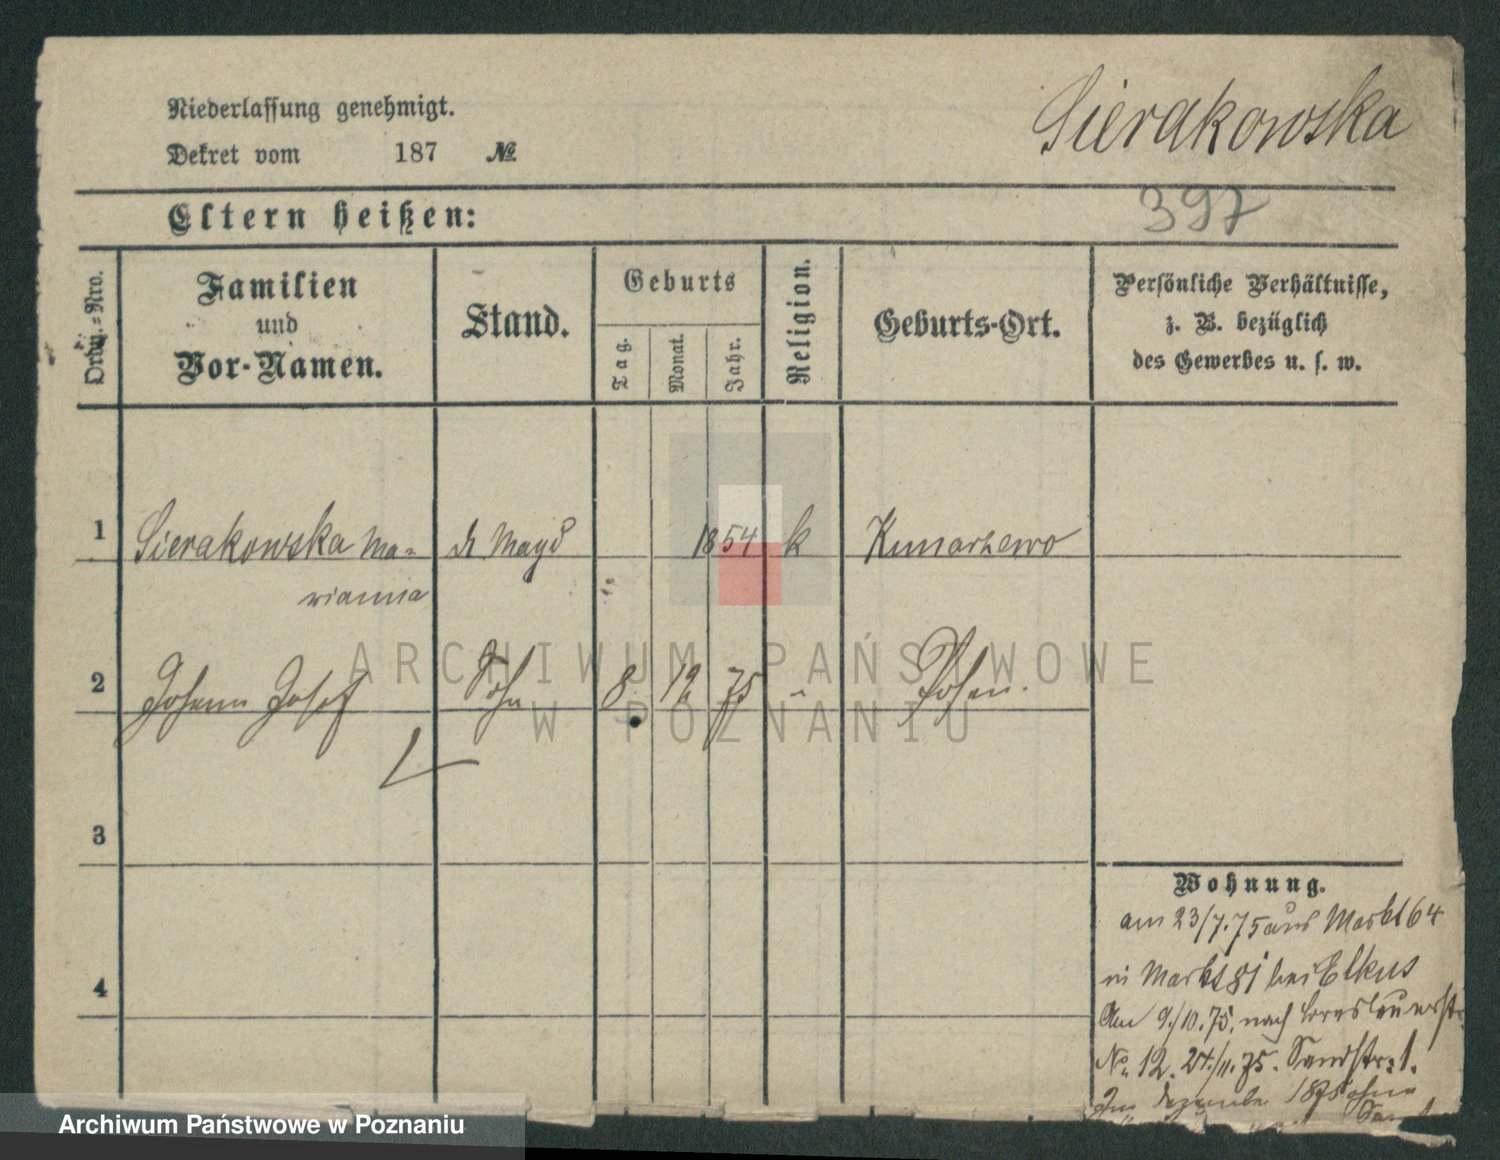 Niederlassung genehmigt.
Dekret vom 187 №
Sierakowska
397
Eltern heißen:
Ordn.-Nro.
Familien
und
Vor-Namen.
Stand.
Geburts
Tag.
Monat.
Jahr.
Religion.
Geburts-Ort.
Persönliche Verhältnisse,
z. B. bezüglich
des Gewerbes u. s. w.
1 Sierakowska Ma- Magd 1854 k Kunarzewo
rianna
2 Johann Josef Sohn 8 12 75 " Posen.
3
4
Wohnung.
am 23/7.75 aus Markt 64
in Markt 81 bei Elkus
Am 9/10.75. nach Breslauerstr.
No 12. 24/11.75. Sandstr. 1.
Im Dezember 1875 ohne
ARCHIWUM PAŃSTWOWE
W POZNANIU
Archiwum Państwowe w Poznaniu